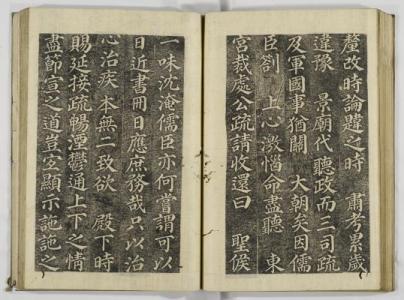 釐改時論韙之時　肅考累歲
違豫　景廟代聽政而三司疏
及軍國事猶關　大朝矣因儒
臣劄　上心激惱命盡聽　東
宮裁處公疏請收還曰　聖候
一味沈淹儒臣亦何嘗謂可以
日近書冊日應庶務哉只以治
心治疾本無二致欲　殿下時
賜延接疏暢湮鬱通上下之情
盡節宣之道豈宜顯示訑訑之